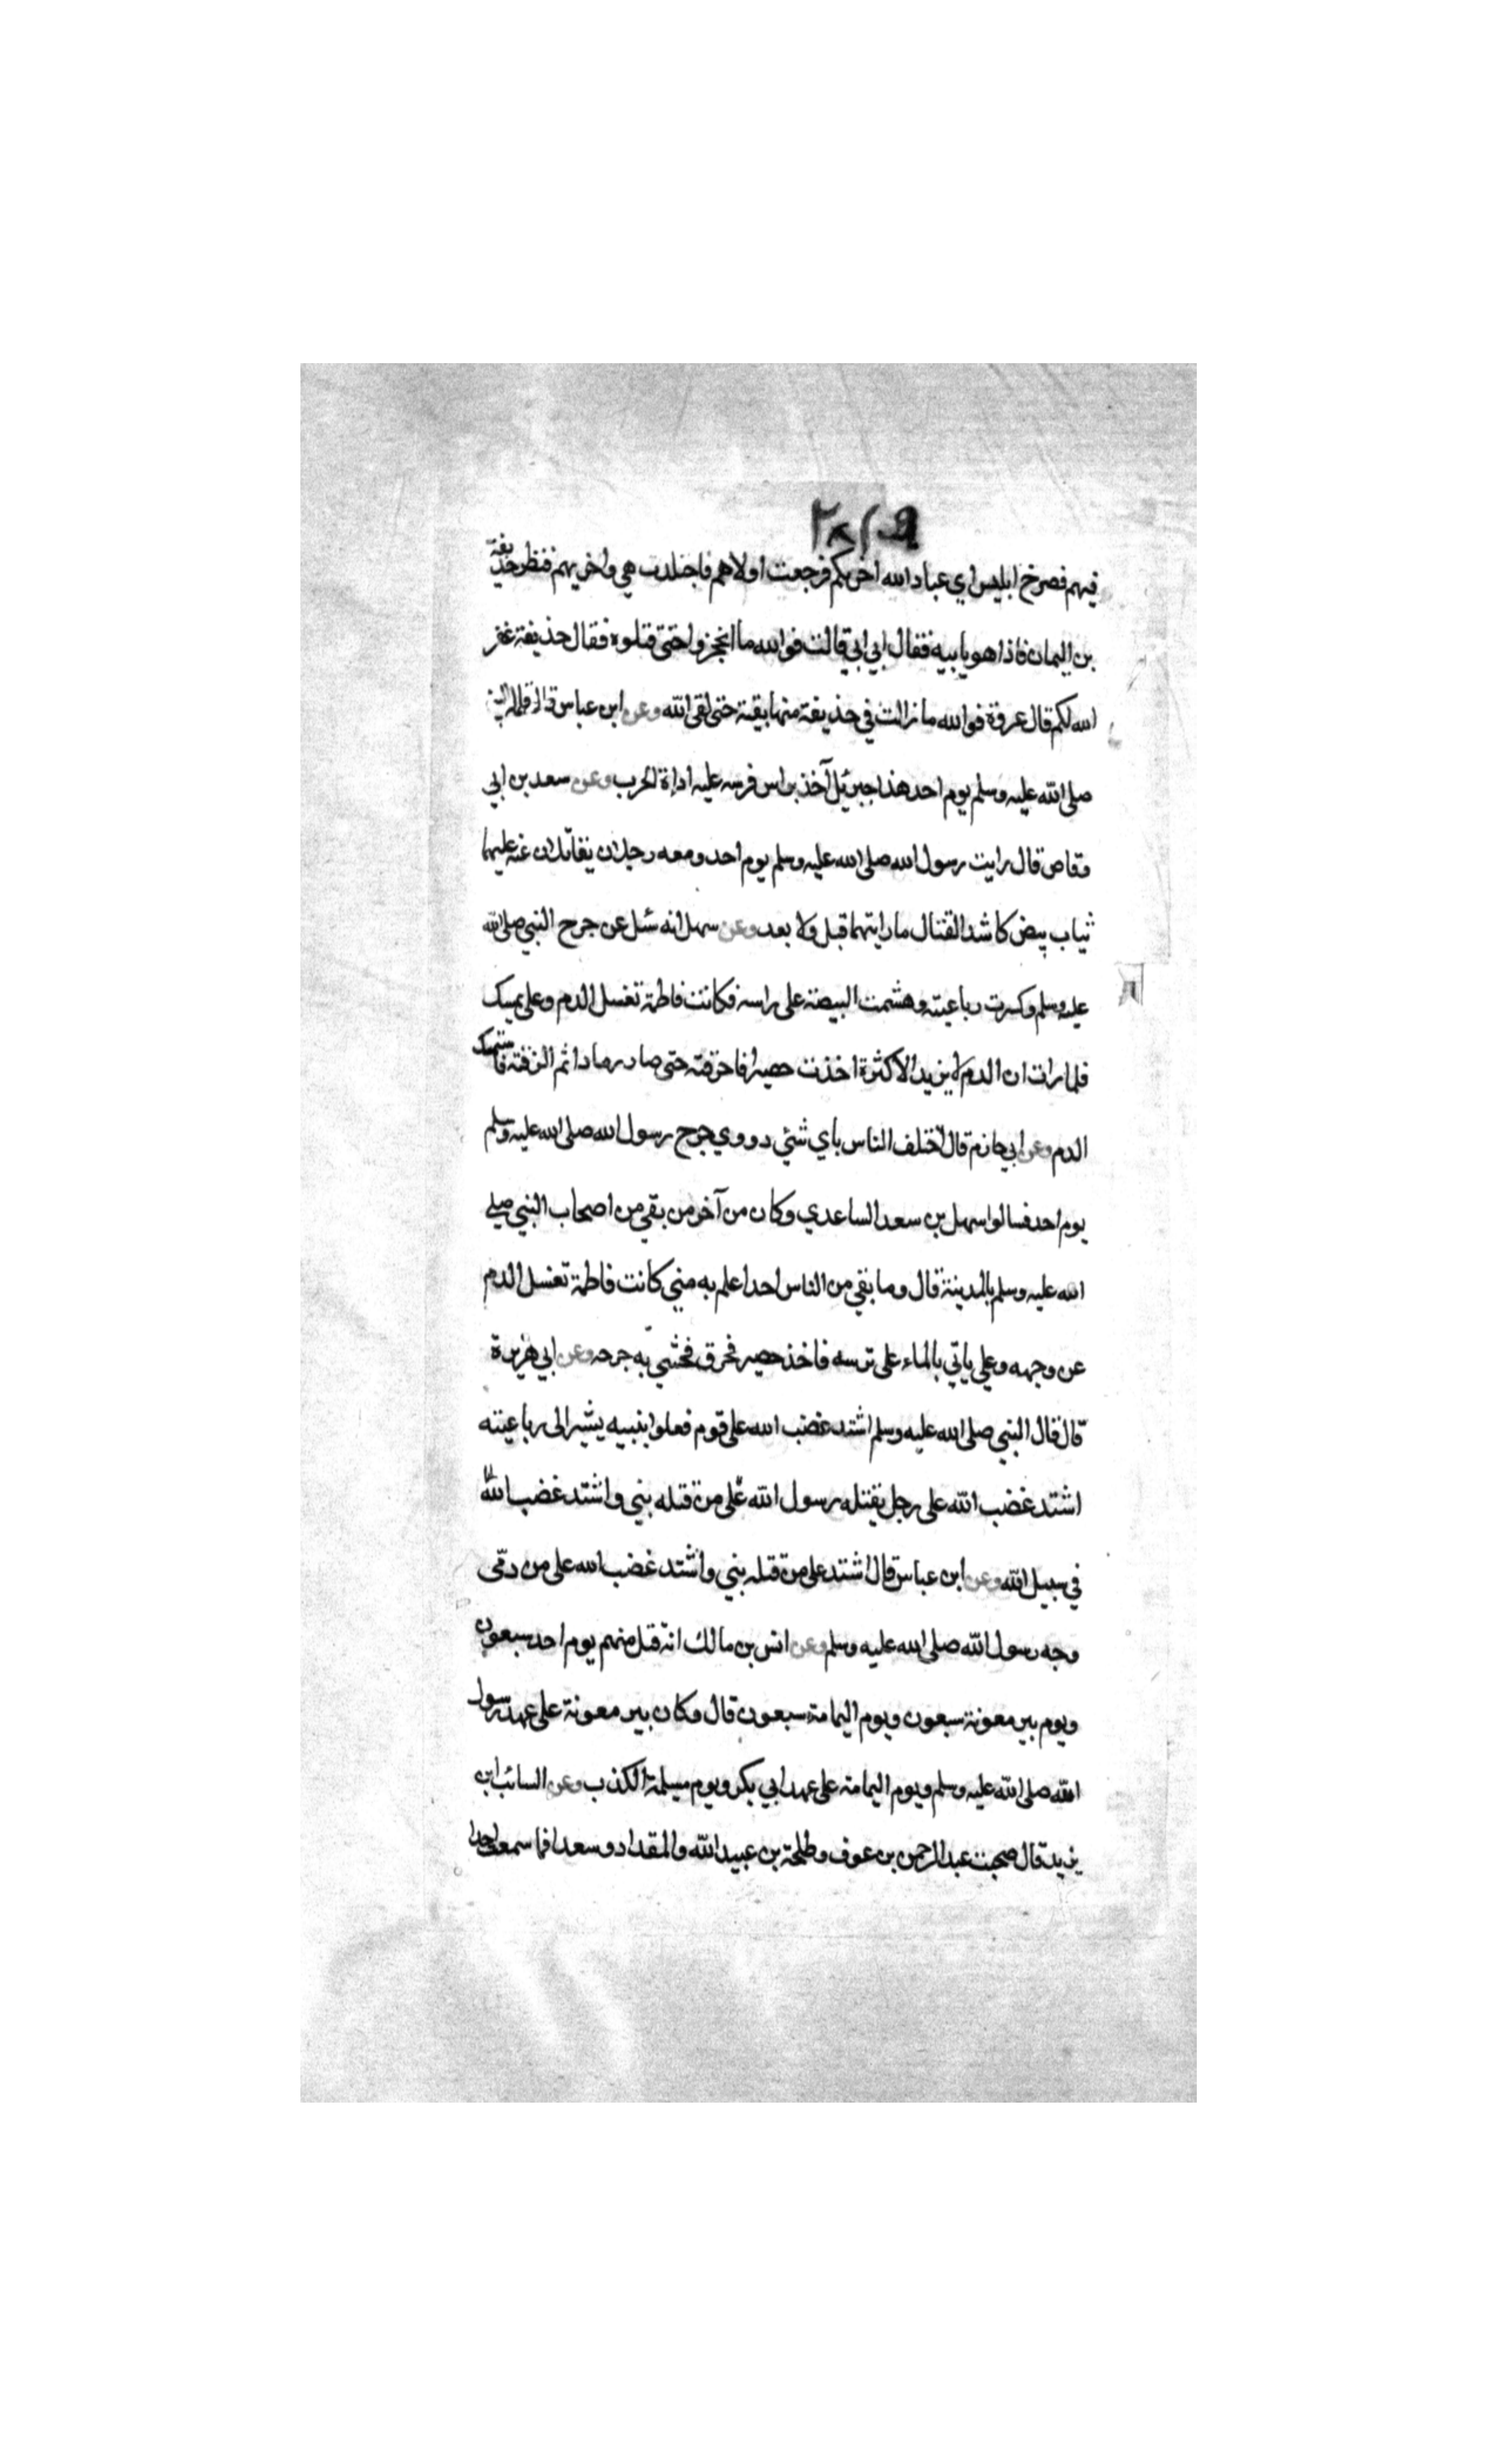 فيهم فصرخ ابليس اي عباد الله اخريكم فرجعت اولاهم فاجتلدت هي واخريهم فنظر حذيفة
بن اليمان فاذا هو بابيه فقال ابي ابي قالت فوالله ما انحجزوا حتى قتلوه فقال حذيفة غفر
الله لكم قال عروة فوالله ما زالت في حذيفة منها بقية حتى لقى الله وعن ابن عباس قال قال النبي
صلى الله عليه وسلم يوم احد هذا جبرئيل آخذ براس فرسه عليه اداة الحرب وعن سعد بن ابي
وقاص قال رايت رسول الله صلى الله عليه وسلم يوم احد ومعه رجلان يقاتلان عنه عليهما
ثياب بيض كاشد القتال ما رايتهما قبل ولا بعد وعن سهل انه سئل عن جرح النبي صلى الله
عليه وسلم وكسرت رباعيته وهشمت البيضة على راسه فكانت فاطمة تغسل الدم وعلي يمسك
فلما رات ان الدم لا يزيد الا كثرة اخذت حصيرا فاحرقته حتى صار رمادا ثم الزقته فاستمسك
الدم وعن ابي حازم قال اختلف الناس باي شئ دووي جرح رسول الله صلى الله عليه وسلم
يوم احد فسالوا سهل بن سعد الساعدي وكان من آخر من بقي من اصحاب النبي صلى
الله عليه وسلم بالمدينة قال وما بقي من الناس احد اعلم به مني كانت فاطمة تغسل الدم
عن وجهه وعلي ياتي بالماء على ترسه فاخذ حصير فحرق فحشي به جرحه وعن ابي هريرة
قال قال النبي صلى الله عليه وسلم اشتد غضب الله على قوم فعلوا بنبيه يشير الى رباعيته
اشتد غضب الله على رجل يقتله رسول الله على من قتله نبي واشتد غضب الله
في سبيل الله وعن ابن عباس قال اشتد على من قتله نبي واشتد غضب الله على من دمى
وجه رسول الله صلى الله عليه وسلم وعن انس بن مالك انه قتل منهم يوم احد سبعون
ويوم بير معونة سبعون ويوم اليمامة سبعون قال وكان بير معونة على عهد رسول
الله صلى الله عليه وسلم ويوم اليمامة على عهد ابي بكر ويوم مسيلمة الكذب وعن السائب ابن
يزيد قال صحبت عبد الرحمن بن عوف وطلحة بن عبيد الله والمقداد وسعدا فما سمعت احدا